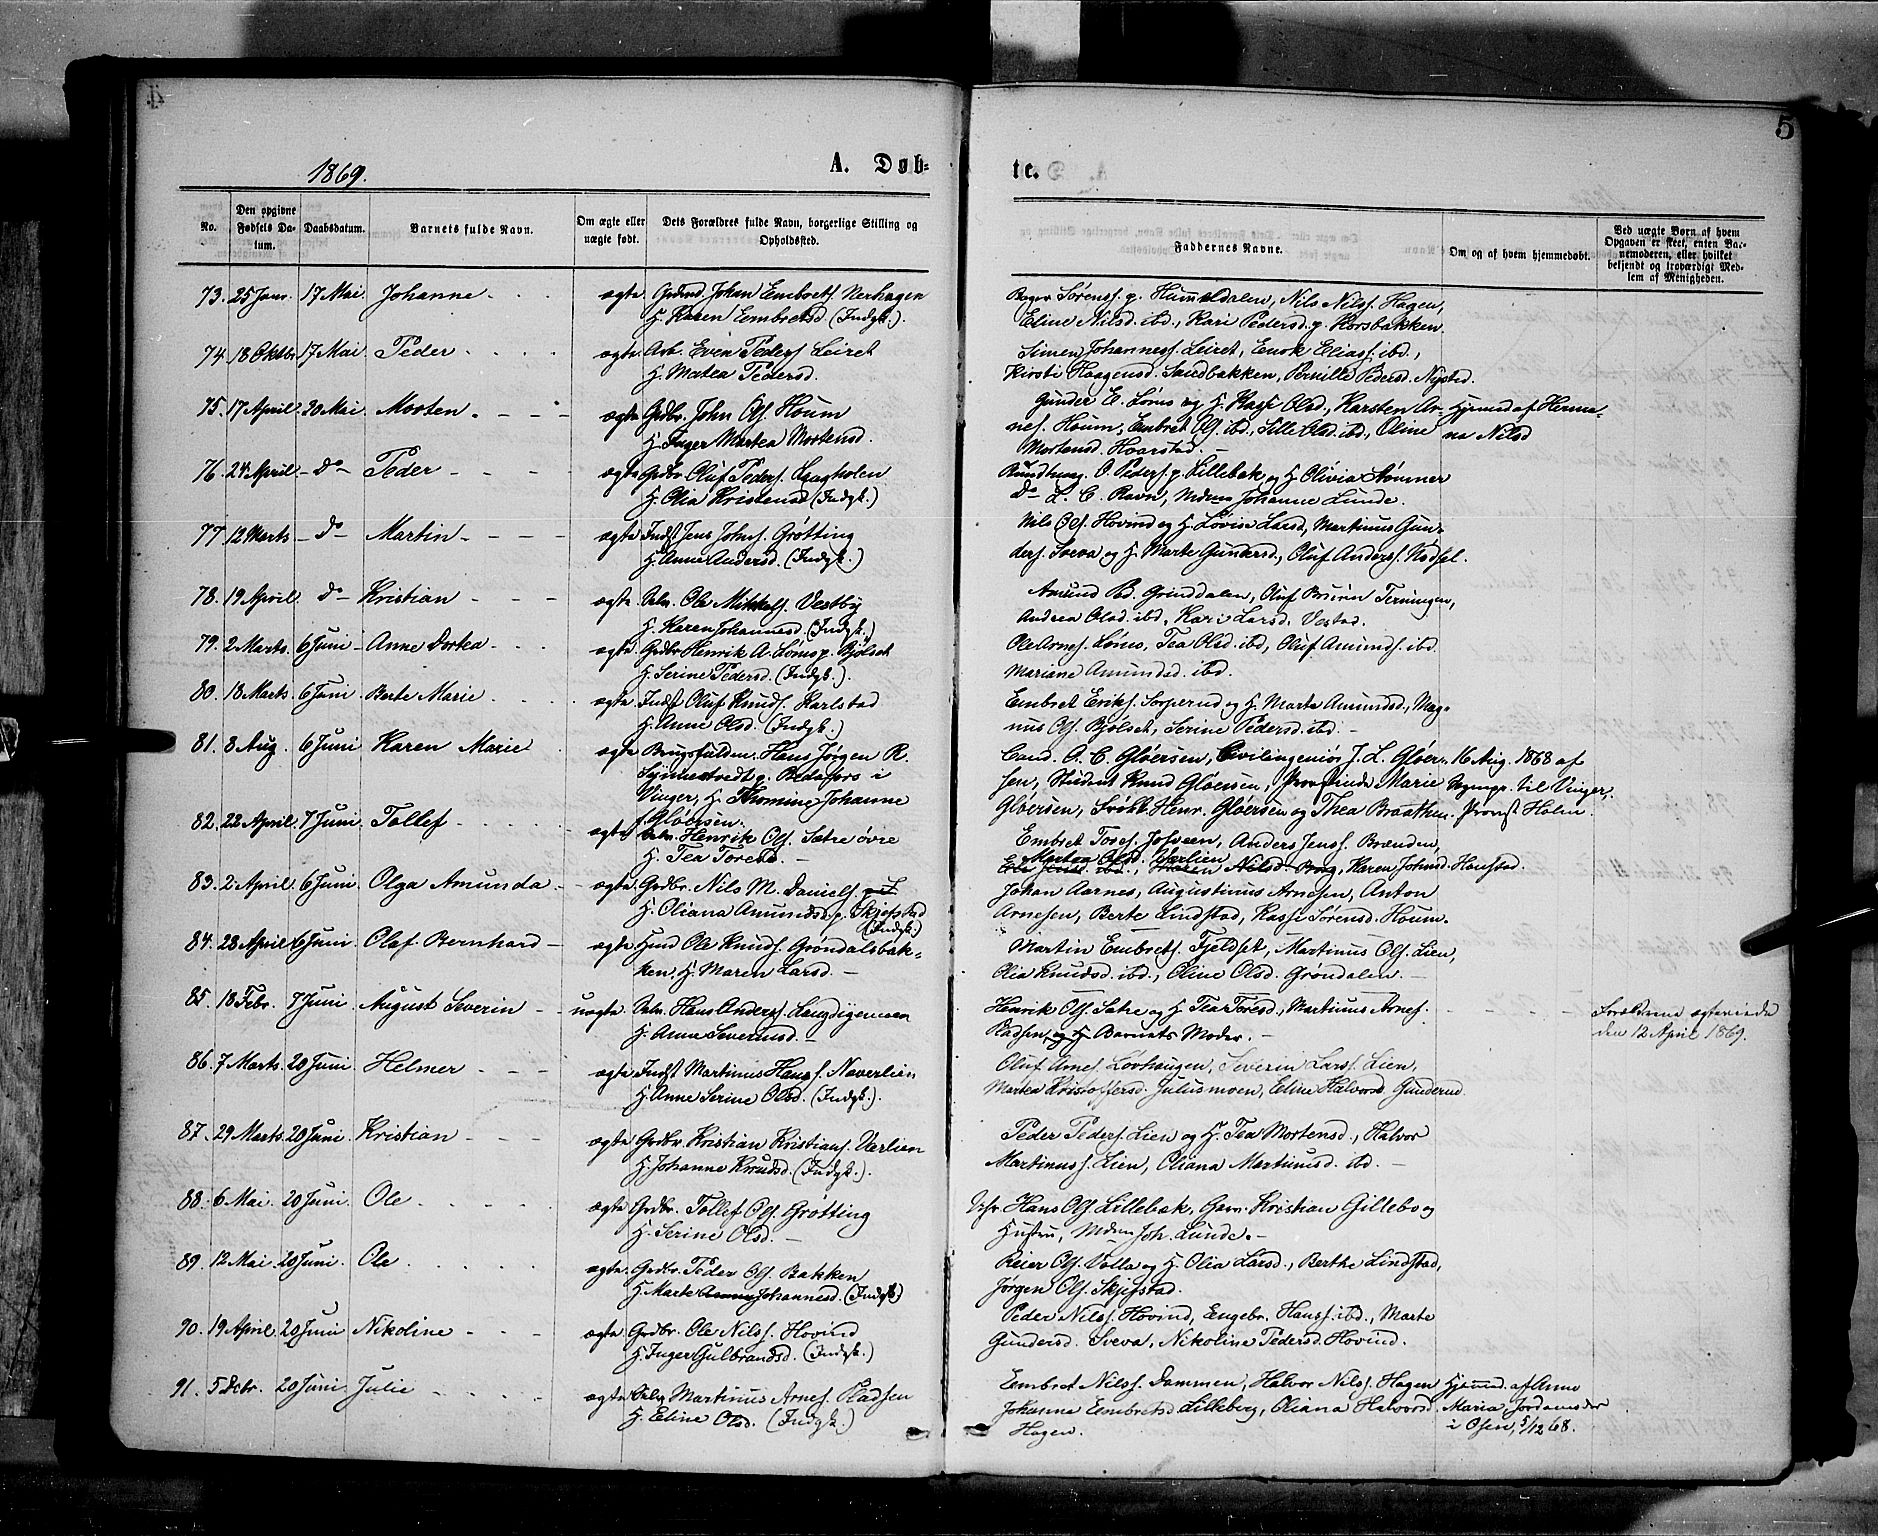 5
1869.
A. Døb-
te.
No.
Den opgivne Fødsels Datum.
Daabsdatum.
Barnets fulde Navn.
Om ægte eller uægte født.
Dets Forældres fulde Navn, borgerlige Stilling og Opholdssted.
Faddernes Navne.
Om og af hvem hjemmedøbt.
Ved uægte Børn af hvem Opgaven er skeet, enten Barnemoderen, eller hvilket bekjendt og troværdigt Medlem af Menigheden.
73. 25 Janr. 17 Mai Johanne ægte Grdmd. Johan Embrets. Nerhagen
H. Karen Embretsd. (Indgk.).
Sørens. p. Hummeldalen, Nils Nilss. Hagen,
Eline Nilsd. ibd., Kari Pedersd. p. Korsbakken.
74. 18 Oktbr. 17 Mai Peder ægte Arb. Even Peders. Leiret
H. Matea Pedersd.
Simen Johanness. Leiret, Enok Elias s. ibd.,
Kirsti Haagensd. Sandbakken, Pernille Pedersd. Nysted.
75. 17 April 30 Mai Morten ægte Grdbr. John Ols. Houm
H. Inger Martea Mortensd.
Gunder E. Løms og H. Kasse Olsd., Karsten Ar- Hjemd. af Herma-
nes. Houm, Embret Ols. ibd., Sille Olsd. ibd., Oline na Nilsd
Mortensd. Hoarstad.
76. 24 April do Peder ægte Grdbr. Oluf Peders. Haagholen
H. Olia Kristensd (Indgk.)
O. Peders. p. Lillebæk og H. Olivia Stømner
do L. C. Ravn, Mdm Johanne Lunde.
77. 12 Marts do Martin ægte Indst. Jens Johns. Grøtting
H. Anne Andersd. (Indgk.)
Nils Ols. Hovind og H. Lovise Larsd., Martinus Gun-
ders. Sveva og H. Marte Gundersd., Oluf Anders. Kadsel.
78. 19 April do Kristian ægte Seln. Ole Mikkels. Vestby
H. Karen Johannesd (Indgk.)
Amund Grinddalen, Oluf Terningen,
Andrea Olsd. ibd., Kari Larsd. Vestad.
79. 2 Marts. 6 Juni Anne Dortea ægte Grdbr Henrik A. Løms p. Bjølset
H. Serine Pedersd. (Indgk.).
Ole Arnes. Løms, Tea Olsd. ibd., Oluf Amunds. ibd.
Mariane Amundsd. ibd.
80. 18 Marts. 6 Juni Berte Marie ægte Indst. Oluf Knuds. Karlstad
H. Anne Olsd. (Indgk.)
Embret Eriks. Sorperud og H. Marte Amundsd., Mag-
nus Ols. Bjølset, Serine Pedersd. ibd.
81. 8 Aug. 6 Juni Karen Marie ægte Brugsfuldm. Hans Jørgen R.
Synnestvedt p. Bedafors i
Vinger, H. Thomine Johanne
Gløersen.
Cand. O. C. Gløersen, Civilingeniør J. L. Gløer- 16 Aug. 1868 af
sen, Student Knud Gløersen, Marie Sognepr. til Vinger,
Gløersen, Henr. Gløersen og Thea Braathen. Provst Holm.
82. 22 April. 7 Juni Tollef ægte Seln. Henrik Ols. Sætre øvre
H. Tea Toresd.
Embret Tores. Josveen, Anders Jenss. Brænden,
Martea Olsd. Varlien
Karen Johnsd. Haustad.
83. 2 April. 6 Juni Olga Amunda ægte Grdbr. Nils M. Daniels.
H. Oliana Amundsd. p. Skjefstad
(Indgk.)
Johan Aarnes, Augustinus Arnesen, Anton
Arnesen, Berte Lindstad, Kasse Sørensd. Houm.
84. 28 April 6 Juni Olaf Bernhard ægte Husmd Ole Knuds. Grøndalsbak-
ken, H. Maren Larsd.
Martin Embrets. Fjeldset, Martinus Ols. Lien,
Olia Knudsd. ibd., Oline Olsd. Grøndalen.
85 18 Febr. 7 Juni August Severin uægte Seln. Hans Anders. Langdigemoen
H. Anne Severinsd.
Henrik Ols. Sætre og H. Tea Toresd., Martinus Arnes.
Pladsen, og H. Barnets Moder.
Forældrene ægteviede
den 12 April 1869.
86. 7 Marts. 20 Juni Helmer ægte Indst. Martinus Hans s. Naverlien
H. Anne Serine Olsd. (Indgk.).
Oluf Arnes. Løvhaugen, Severin Lars s. Lien,
Martea Kristoffersd. Julusmoen, Eline Halvorsd. Gunderud.
87. 29 Marts. 20 Juni. Kristian ægte Grdbr. Kristian Kristians. Varlien
H. Johanne Knudsd. (Indgk.).
Peder Peders. Lien og H. Tea Mortensd., Halvor
Martinus s. Lien, Oliana Martinusd. ibd.
88. 6 Mai. 20 Juni. Ole ægte Grdbr. Tollef Ols. Grøtting
H. Serine Olsd.
Hans Ols. Lillebæk, Garv. Kristian Gillebo og
Hustru, Mdm Joh. Lunde.
89. 12 Mai. 20 Juni. Ole ægte Grdbr. Peder Ols. Bakken
H. Marte Johannesd. (Indgk.)
Reier Ols. Volla og H. Olia Larsd., Berthe Lindstad,
Jørgen Ols. Skjefstad.
90. 19 April. 20 Juni Nikoline ægte Grdbr. Ole Nils s. Hovind
H. Inger Gulbrandsd. (Indgk.)
Peder Nils s. Hovind, Engebr. Hans s. ibd., Marte
Gundersd. Sveva, Nikoline Pedersd. Hovind.
91. 5 Dcbr. 20 Juni. Julie ægte Seln. Martinus Arnes. Pladsen
H. Eline Olsd. (Indgk.)
Embret Nilss. Dammen, Halvor Nils s. Hagen Hjemmed. af Anne
Johanne Embretsd. Lilleberg, Oliana Halvorsd. Maria Jordamoder
Hagen. i Osen, 5/12 68.